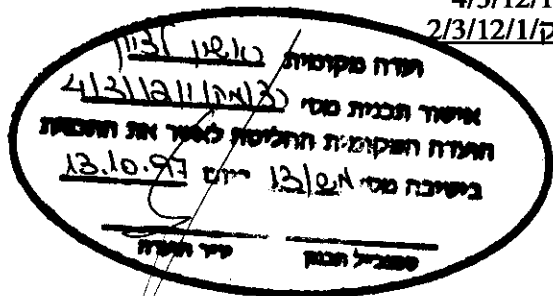 4/3/12/1
2/3/12/1/ק
ועדה מקומית ראשון לציון
אישור תכנית מס' רצ/מק/1/12/3/4
הועדה המקומית החליטה לאשר את התכנית
בישיבה מס' ביום 13.10.97
סמנכ"ל תכנון
יו"ר הועדה